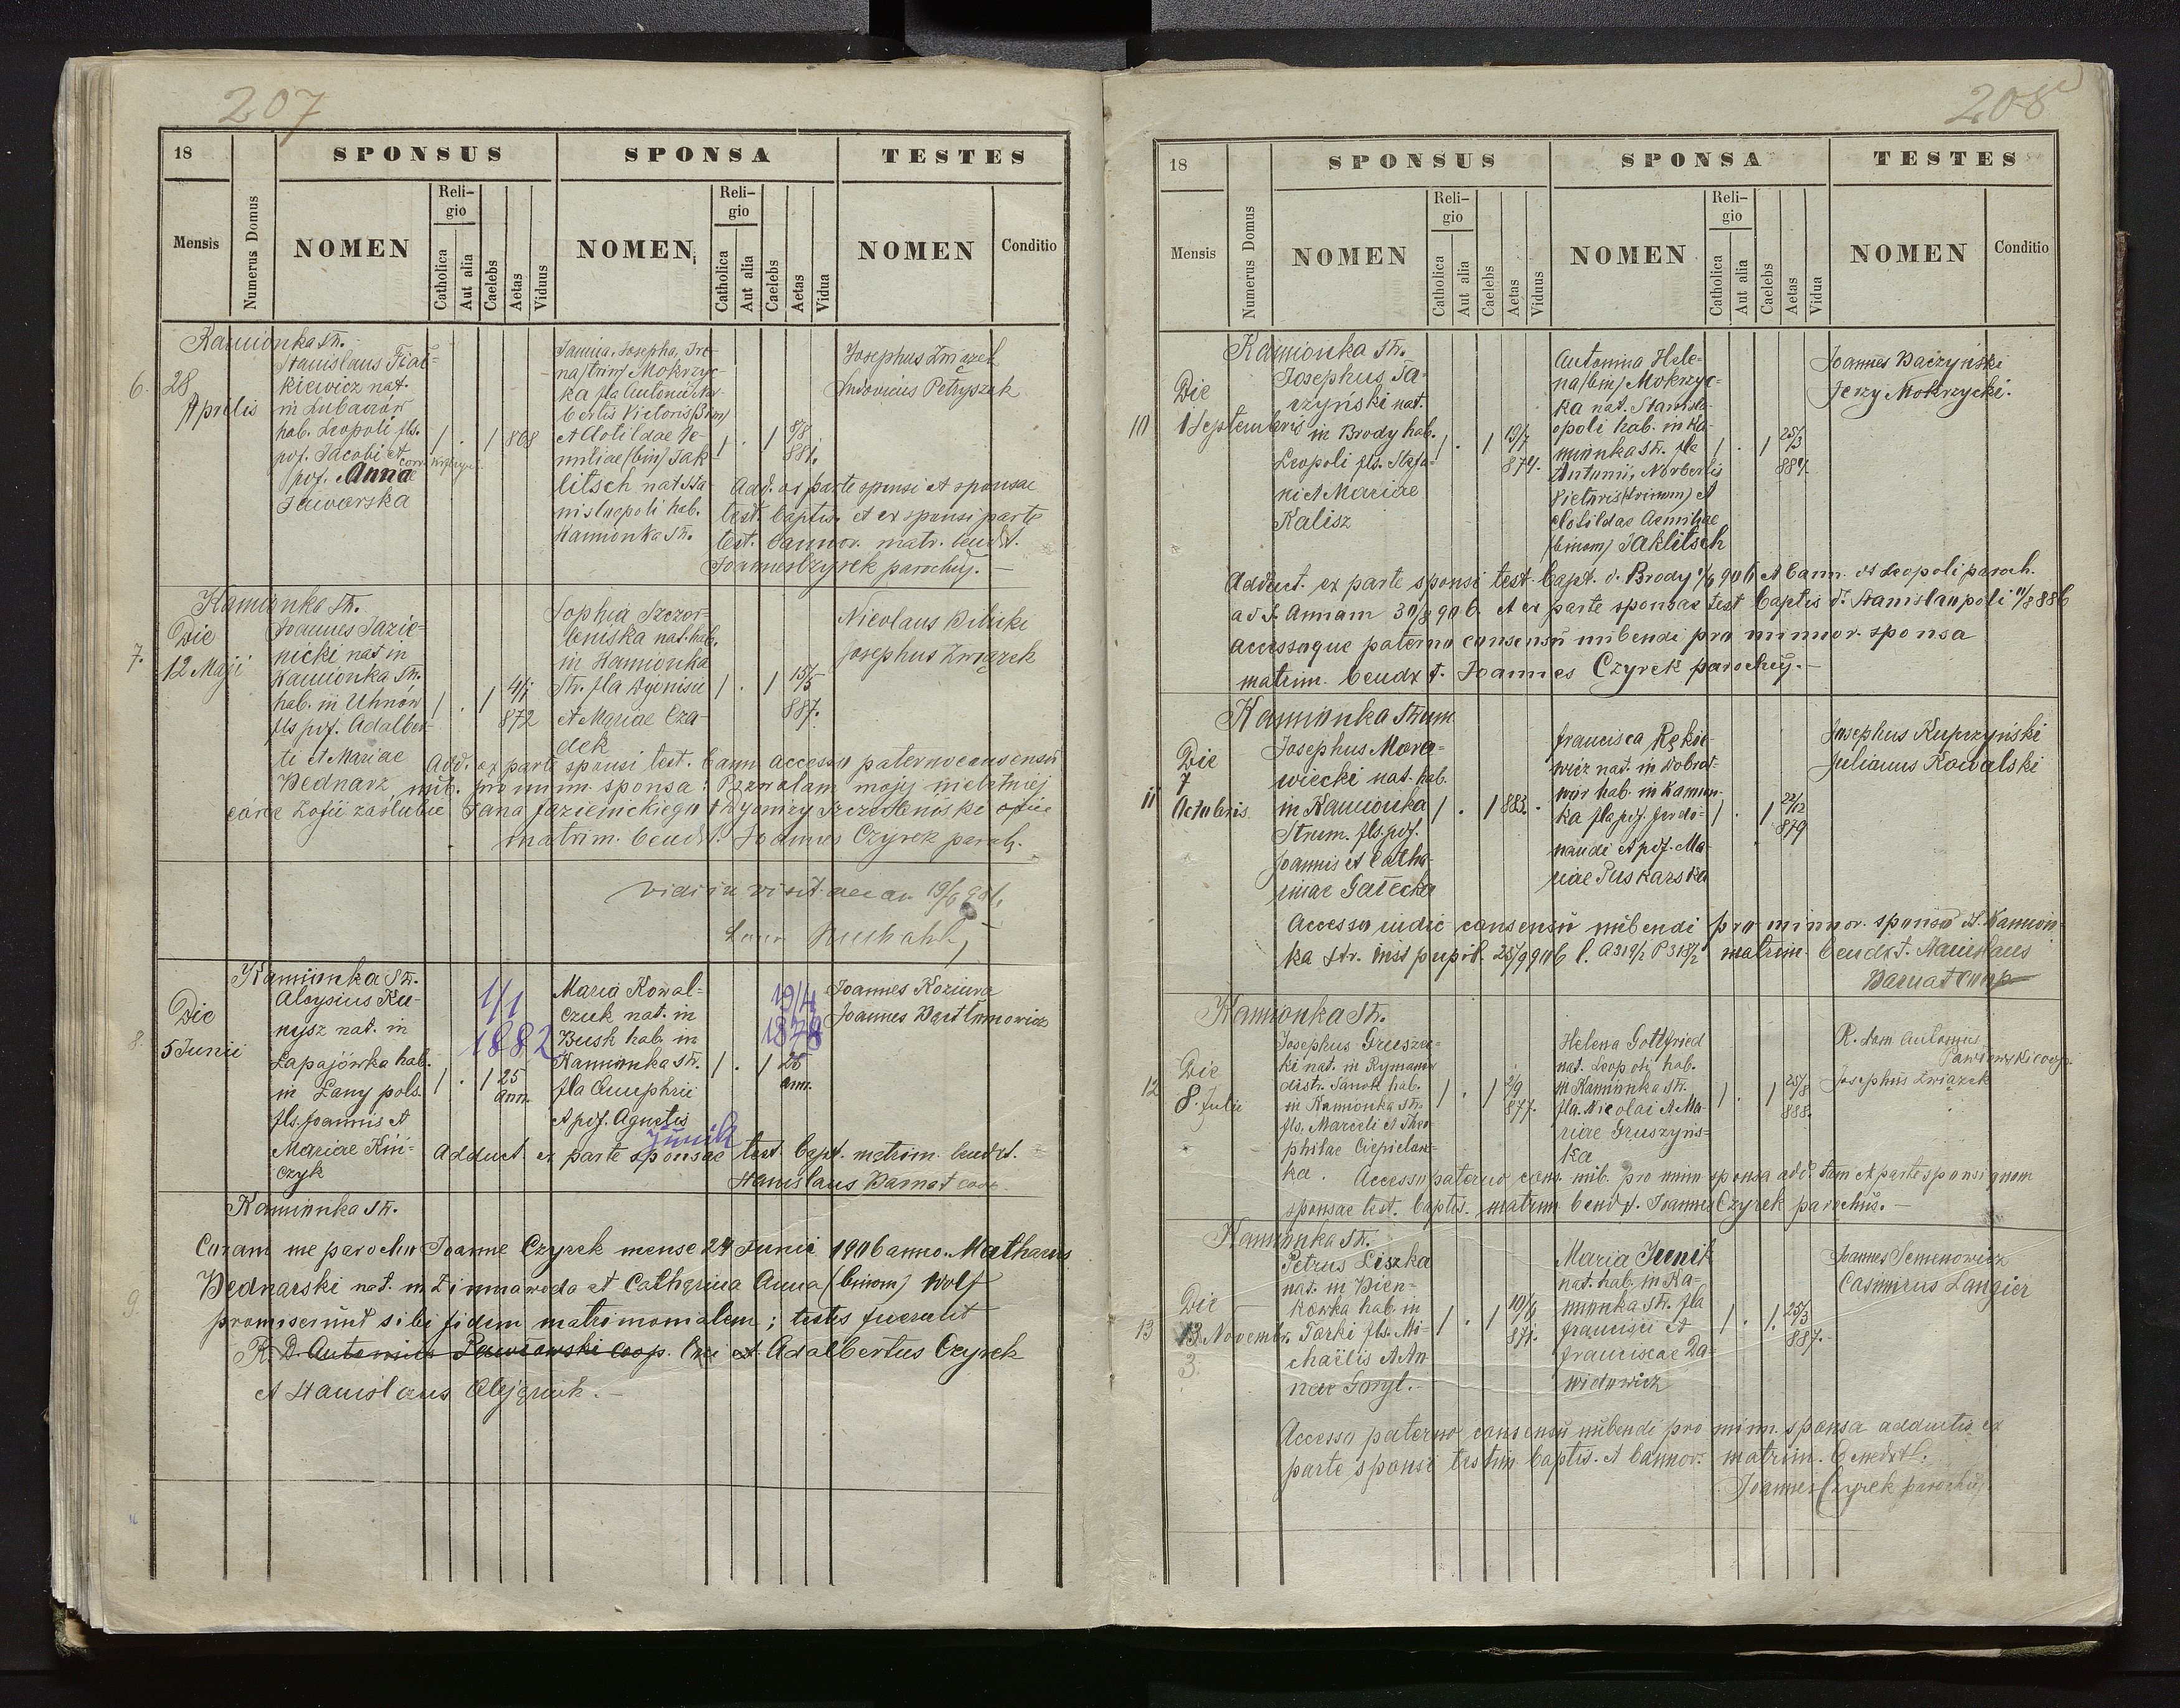 207
18
SPONSUS
SPONSA
TESTES
Mensis
Numerus Domus
NOMEN
Reli-
gio
Catholica
Aut alia
Caelebs
Aetas
Viduus
NOMEN
Reli-
gio
Catholica
Aut alia
Caelebs
Aetas
Vidua
NOMEN
Conditio
Kamionka Str.
6.
28
Aprilis
Stanislaus Fiał-
kiewicz nat.
in Lubaczów
hab. Leopoli fls.
pdf. Jacobi et
pdf. Anna
Jaworska
1 . 1 868
Janina, Josepha, Ire-
na (trin) Mokrzyc-
ka fla Antonii Nor-
bertis Victoris (trin)
et Clotildae Ae-
miliae (bin) Jak-
litsch nat. Sta-
nislaopoli hab.
Kamionka Str.
1 . 1 8/8
881.
Josephus Związek
Ludovicus Petryszak
Add. ex parte sponsi et sponsae
test. baptis. et ex sponsi parte
test. bannor. matr. bened.
Joannes Czyrek parochus. —
Kamionka Str.
7.
Die
12 Maji
Joannes Jazie-
nicki nat in
Kamionka Str.
hab. in Uhnów
fls pdf. Adalber-
ti et Mariae
Bednarz
1 . 1 4/1
872
Sophia Szczer-
nat. hab.
in Kamionka
Str. fla Dyonisii
et Mariae Cza-
dek
1 . 1 15/5
887.
Nicolaus Bilicki
Josephus Związek
Add. ex parte sponsi test. bann. accesso paterno consensu
nub. pro minn. sponsa: Pozwalam mojej nieletniej
córce Zofii zaślubić Jana Jazienickiego ojciec
matrim. bened. Joannes Czyrek paroch.
Vidi in visit. decan 19/6 906.
Kamionka Str.
8.
Die
5 Junii
Aloysius Ku-
nysz nat. in
Łapajówka hab.
in Łany pols.
fls. Joannis et
Mariae Kin-
czyk
1/1
1882
1 . 1 25
ann.
Maria Kowal-
czuk nat. in
Busk hab. in
Kamionka Str.
fla Onuphrii
et pdf. Agnetis
Junik
19/4
1878
1 . 1 26
ann.
Joannes Koziura
Joannes Bartłmowicz
Adduct. ex parte sponsae test. bapt. matrim. bened.
Stanislaus Barnat coop.
Kamionka Str.
9.
Coram me parocho Joanne Czyrek mense 24 Junii 1906 anno. Mathaeus
Bednarski nat. in Zimnawoda et Catharina Anna (binom) Wolf
promiserunt sibi fidem matrimonialem; testes fuerunt
R. D. Antonius Pawłowski coop. Adalbertus Czyrek
et Stanislaus Olejnik. —
208
18
SPONSUS
SPONSA
TESTES
Mensis
Numerus Domus
NOMEN
Reli-
gio
Catholica
Aut alia
Caelebs
Aetas
Viduus
NOMEN
Reli-
gio
Catholica
Aut alia
Caelebs
Aetas
Vidua
NOMEN
Conditio
Kamionka Str.
10
Die
1 Septembris
Josephus Ta-
czyński nat.
in Brody hab.
Leopoli fls. Stefa-
ni et Mariae
Kalisz
1 . 1 19/7
874.
Antonina Hele-
na (bin) Mokrzyc-
ka nat. Stanisla-
opoli hab. in Ka-
mionka Str. fla
Antonii, Norbertis
Victoris (trinom) et
Clotildae Aemiliae
(binom) Jaklitsch
1 . 1 25/3
884.
Joannes Baczyński
Jerzy Mokrzycki.
Adduct. ex parte sponsi test. bapt. d. Brody 1/9 906 et bann. d. Leopoli paroch.
ad S. Annam 30/8 906. et ex parte sponsae test baptis d. Stanislaopoli 11/8 886
accessoque paterno consensu nubendi pro minnor. sponsa
matrim. bened. Joannes Czyrek parochus. —
Kamionka Strum
11
Die
7
Octobris
Josephus Mora-
wiecki nat. hab.
in Kamionka
Strum. fls. pdf.
Joannis et Catha-
rinae Gałecka
1 . 1 883.
Francisca Rękie-
wicz nat. in Dobrot-
wór hab. in Kamion-
ka fla pdf. Ferdi-
nandi et pdf. Ma-
riae Puskarska
1 . 1 22/12
879
Josephus Kupczyński
Julianus Kowalski
Accesso iudic consensu nubendi pro minnor. sponso d. Kamion-
ka Str. 25/9 906 l. matrim. bened. Stanislaus
Barnat coop
Kamionka Str.
12
Die
8. Julii
Josephus Grusze-
ki nat. in Rymanów
distr. Sanok hab.
in Kamionka Str.
fls. Marceli et Theo-
philae Ciepielow-
ka.
1 . 1 2/9
877.
Helena Gottfried
nat. Leopoli, hab.
in Kamionka Str.
fla. Nicolai et Ma-
riae Gruszyńs-
ka
1 . 1 25/8
888.
R. Dom Antonius
Pawłowski coop.
Josephus Związek
Accesso paterno cons. nub. pro minn sponsa add. tam et parte sponsi quam
sponsae test. baptis. matrim bened. Joannes Czyrek parochus. —
Kamionka Str.
13
Die
13 Novembr.
3.
Petrus Liszka
nat. in Bień-
kowka hab. in
Torki fls. Mi-
chaëlis et An-
nae Goryl. —
1 . 1 10/4
871.
Maria Junik
nat. hab. in Ka-
mionka Str. fla
Francisci et
Franciscae Da-
widowicz
1 . 1. 25/3
887. —
Joannes Semenowicz
Casimirus Langier
Accesso paterno consensu nubendi pro minn. sponsa adductis ex
parte sponsi testim. baptis. et bannor. matrim. bened.
Joannes Czyrek parochus.